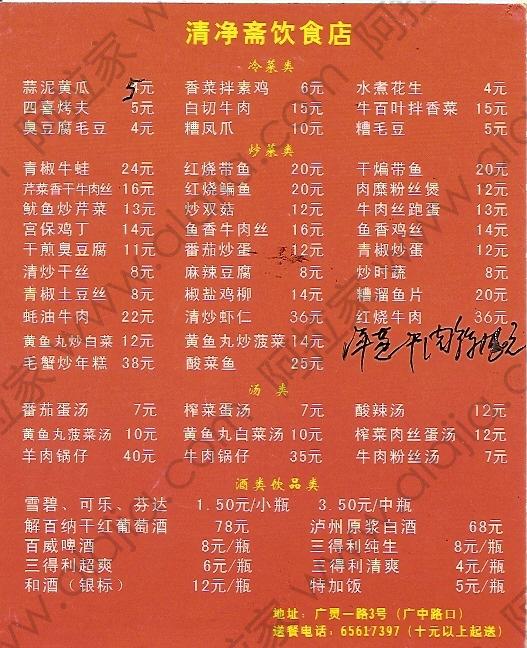 清净斋饮食店
冷菜类
蒜泥黄瓜 5元 香菜拌素鸡 6元 水煮花生 4元
四喜烤夫 5元 白切牛肉 15元 牛百叶拌香菜 15元
臭豆腐毛豆 4元 糟凤爪 10元 糟毛豆 5元
炒菜类
青椒牛蛙 24元 红烧带鱼 20元 干煸带鱼 20元
芹菜香干牛肉丝 16元 红烧鳊鱼 20元 肉糜粉丝煲 12元
鱿鱼炒芹菜 13元 炒双菇 12元 牛肉丝跑蛋 13元
宫保鸡丁 14元 鱼香牛肉丝 16元 鱼香鸡丝 14元
干煎臭豆腐 11元 番茄炒蛋 12元 青椒炒蛋 12元
清炒干丝 8元 麻辣豆腐 8元 炒时蔬 8元
青椒土豆丝 8元 椒盐鸡柳 14元 糟溜鱼片 20元
蚝油牛肉 22元 清炒虾仁 36元 红烧牛肉 36元
黄鱼丸炒白菜 12元 黄鱼丸炒菠菜 14元
毛蟹炒年糕 38元 酸菜鱼 25元
汤 类
番茄蛋汤 7元 榨菜蛋汤 7元 酸辣汤 12元
黄鱼丸菠菜汤 10元 黄鱼丸白菜汤 10元 榨菜肉丝蛋汤 12元
羊肉锅仔 40元 牛肉锅仔 35元 牛肉粉丝汤 7元
酒类饮品类
雪碧、可乐、芬达 1.50元/小瓶 3.50元/中瓶
解百纳干红葡萄酒 78元 泸州原浆白酒 68元
百威啤酒 8元/瓶 三得利纯生 8元/瓶
三得利超爽 6元/瓶 三得利清爽 4元/瓶
和酒（银标） 12元/瓶 特加饭 5元/瓶
地址：广灵一路3号（广中路口）
送餐电话：65617397（十元以上起送）